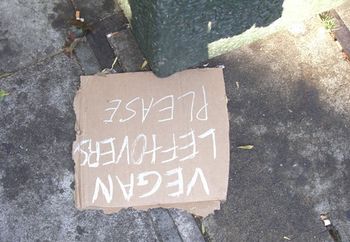 VEGAN
LEFTOVERS
PLEASE